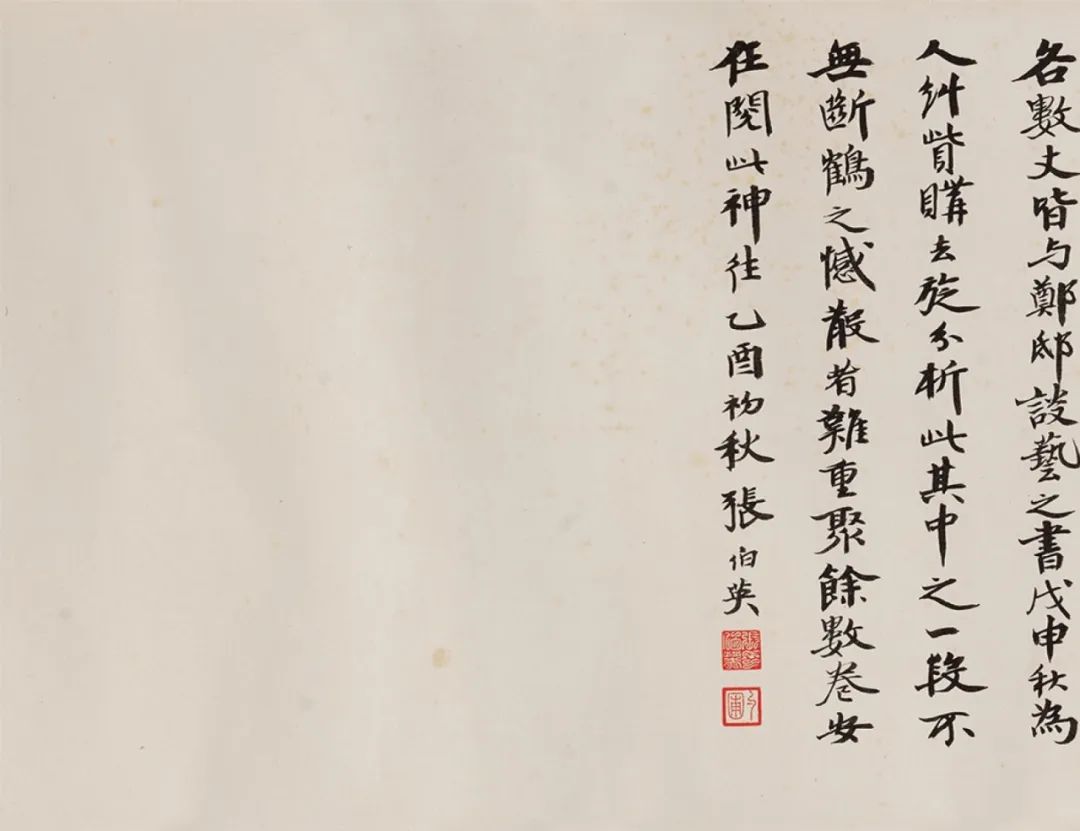 各數丈皆与鄭邸談藝之書戊申秋為
人糾貲購去旋分析此其中之一段不
無斷鶴之憾散者難重聚餘數卷安
在閱此神往乙酉初秋張伯英
張伯英
勺圃